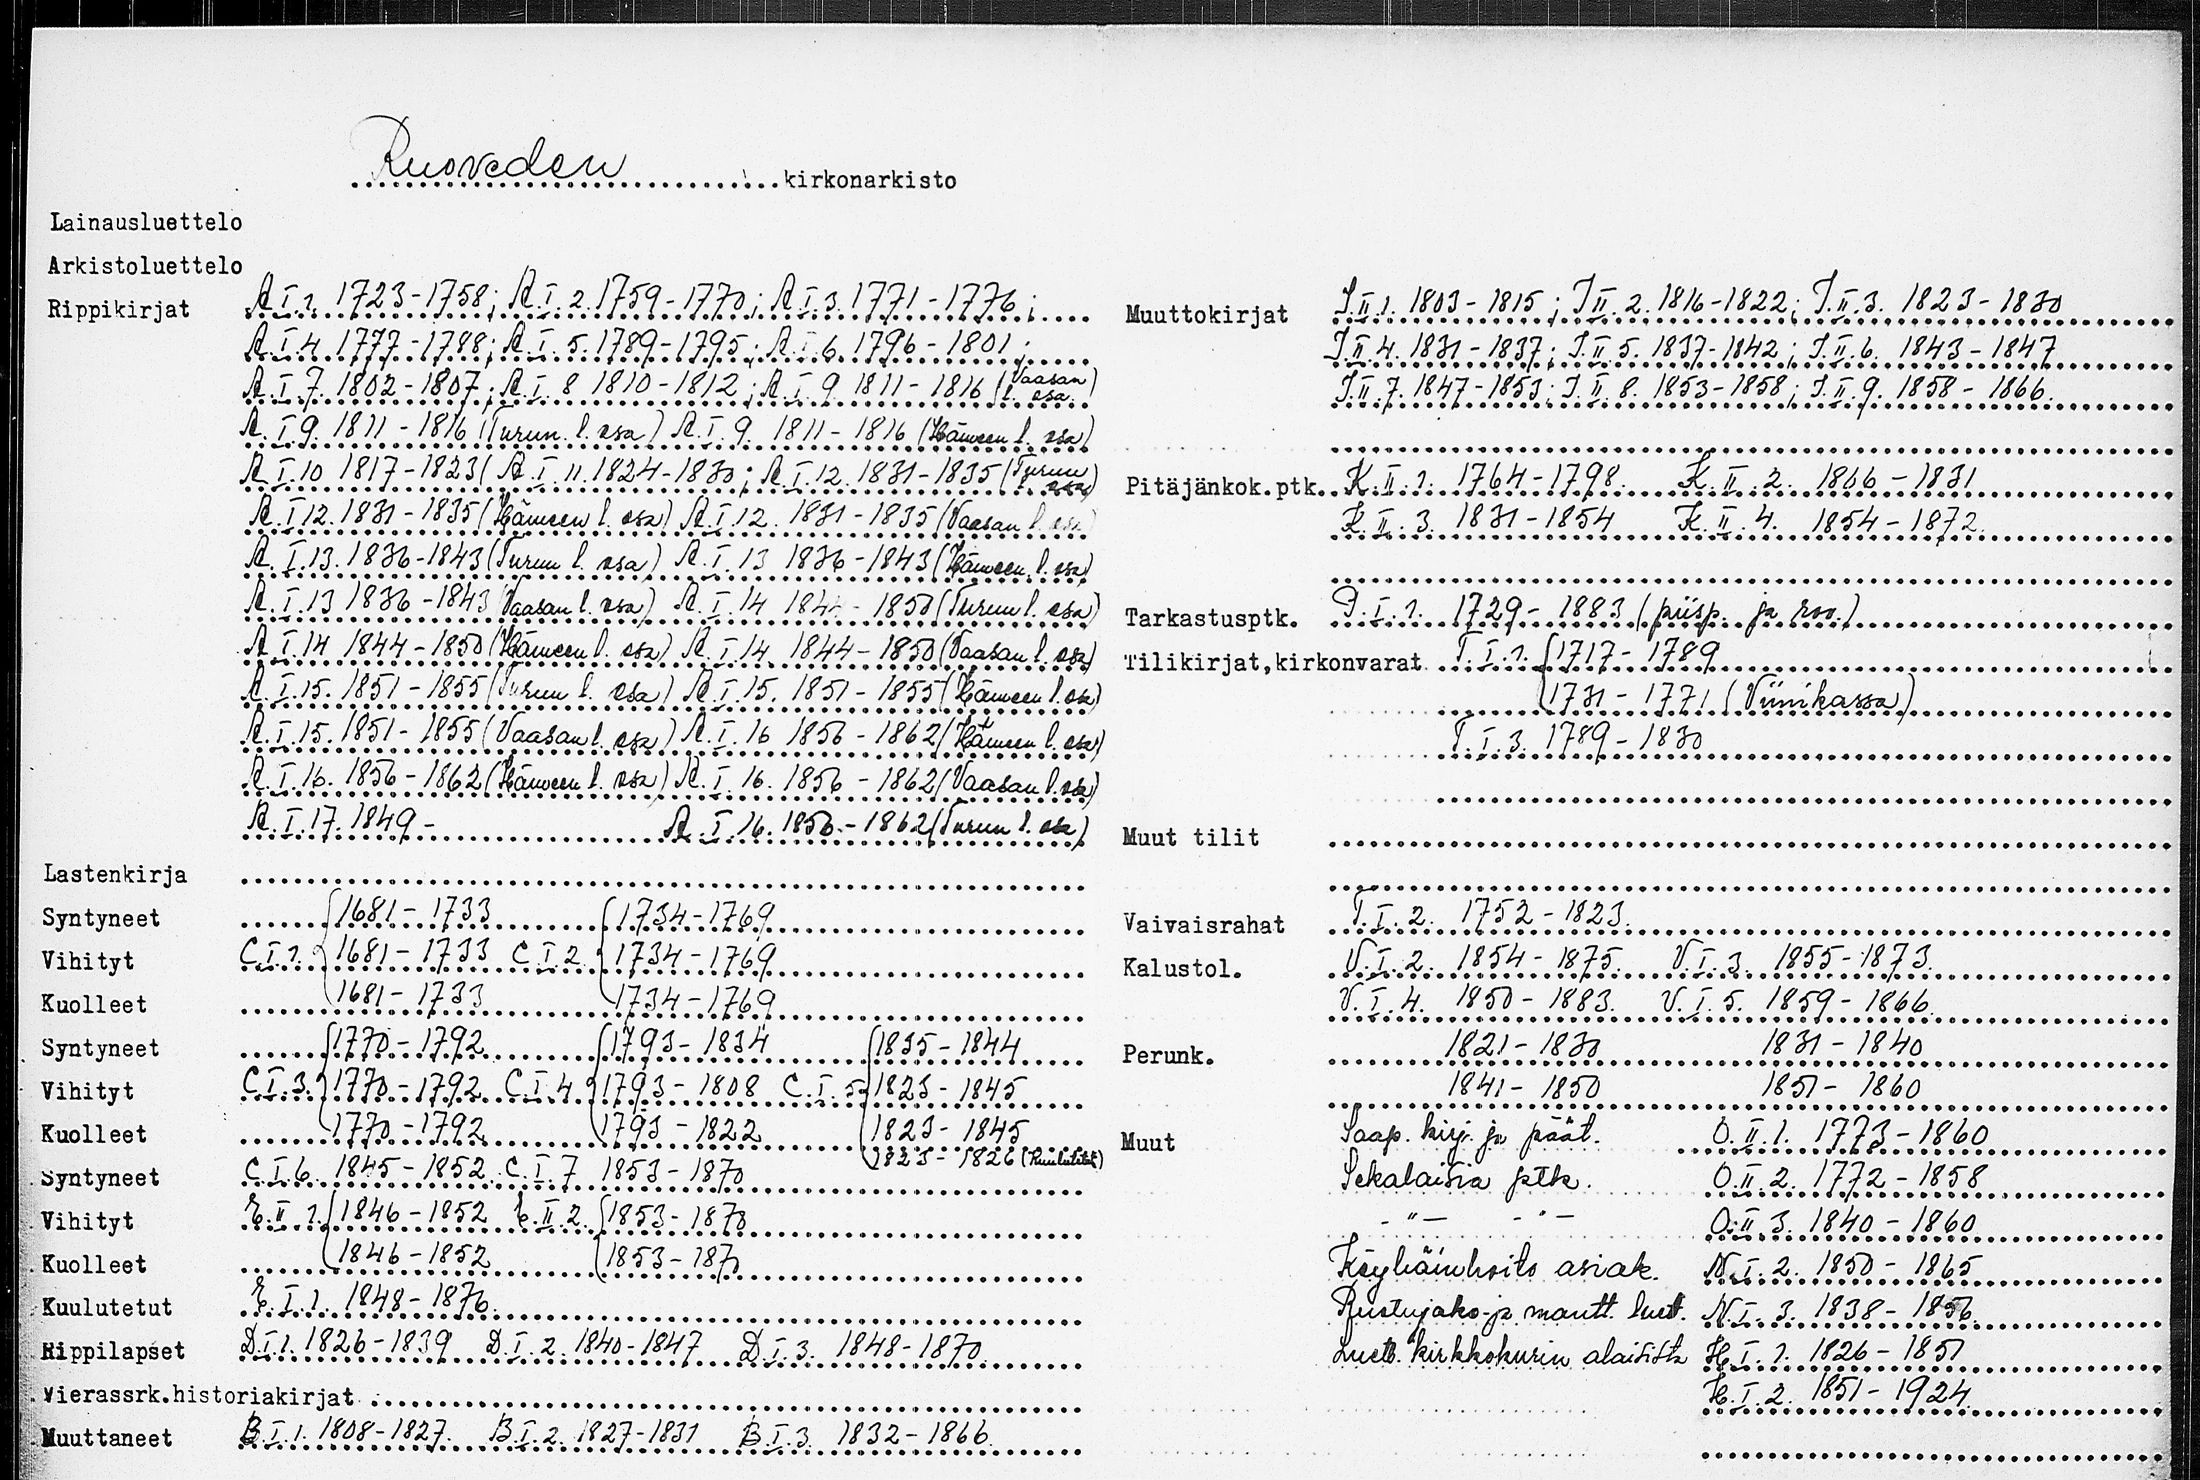 Ruoveden kirkonarkisto
Lainausluettelo
Arkistoluettelo
Rippikirjat A.I.1. 1723-1758; A.I.2. 1759-1770; A.I.3. 1771-1776;
A.I.4. 1777-1788; A.I.5. 1789-1795; A.I.6. 1796-1801;
A.I.7. 1802-1807; A.I.8 1810-1812; A.I.9 1811-1816 (Vaasan l. osa)
A.I.9. 1811-1816 (Turun l. osa) A.I.9. 1811-1816 (Hämeen l. osa)
A.I.10 1817-1823( A.I.11. 1824-1830; A.I.12. 1831-1835 (Turun osa)
A.I.12. 1831-1835 (Hämeen l. osa) A.I.12. 1831-1835 (Vaasan l. osa)
A.I.13. 1836-1843 (Turun l. osa) A.I.13 1836-1843 (Hämeen l. osa)
A.I.13 1836-1843 (Vaasan l. osa) A.I.14 1844-1850 (Turun l. osa)
A.I.14 1844-1850 (Hämeen l. osa) A.I.14. 1844-1850 (Vaasan l. osa)
A.I.15. 1851-1855 (Turun l. osa) A.I.15. 1851-1855 (Hämeen l. osa)
A.I.15. 1851-1855 (Vaasan l. osa) A.I.16 1856-1862 (Hämeen l. osa)
A.I.16. 1856-1862 (Hämeen l. osa) A.I.16. 1856-1862 (Vaasan l. osa)
A.I.17. 1849- A.I.16. 1856-1862 (Turun l. osa)
Lastenkirja
Syntyneet 1681-1733 1734-1769
Vihityt C.I.1. 1681-1733 C.I.2. 1734-1769
Kuolleet 1681-1733 1734-1769
Syntyneet 1770-1792 1793-1834 1835-1844
Vihityt C.I.3. 1770-1792 C.I.4 1793-1808 C.I.5 1823-1845
Kuolleet 1770-1792 1793-1822 1823-1845
1823-1826 (kuulutetut)
Syntyneet C.I.6. 1845-1852 C.I.7 1853-1870
Vihityt E.II.1. 1846-1852 E.II.2. 1853-1870
Kuolleet 1846-1852 1853-1870
Kuulutetut E.I.1. 1848-1876
Rippilapset D.I.1. 1826-1839 D.I.2. 1840-1847 D.I.3. 1848-1870
Vierassrk.historiakirjat
Muuttaneet B.I.1. 1808-1827. B.I.2. 1827-1831 B.I.3. 1832-1866
Muuttokirjat J.II.1. 1803-1815; J.II.2. 1816-1822; J.II.3. 1823-1830
J.II.4. 1831-1837; J.II.5. 1837-1842; J.II.6. 1843-1847
J.II.7. 1847-1853; J.II.8. 1853-1858; J.II.9. 1858-1866.
Pitäjänkok.ptk. K.II.1. 1764-1798. K.II.2. 1806-1831
K.II.3. 1831-1854 K.II.4. 1854-1872.
Tarkastusptk. P.I.1. 1729-1883 (piisp. ja rov.)
Tilikirjat,kirkonvarat T.I.1. 1717-1789
1731-1771 (Viinikassa)
T.I.3. 1789-1830
Muut tilit
Vaivaisrahat T.I.2. 1752-1823.
Kalustol. V.I.2. 1854-1875. V.I.3. 1855-1873.
V.I.4. 1850-1883. V.I.5. 1859-1866.
Perunk. 1821-1830 1831-1840
1841-1850 1851-1860
Muut Saap. kirj. ja päät. O.II.1. 1773-1860
Sekalaisia ptk. O.II.2. 1772-1858
-"- -"- O.II.3. 1840-1860
Köyhäinhoito asiak. N.I.2. 1850-1865
Ruotujako- ja mantt. luet. N.I.3. 1838-1856.
Luett. kirkkokurin alaisista H.I.1. 1826-1851
H.I.2. 1851-1924